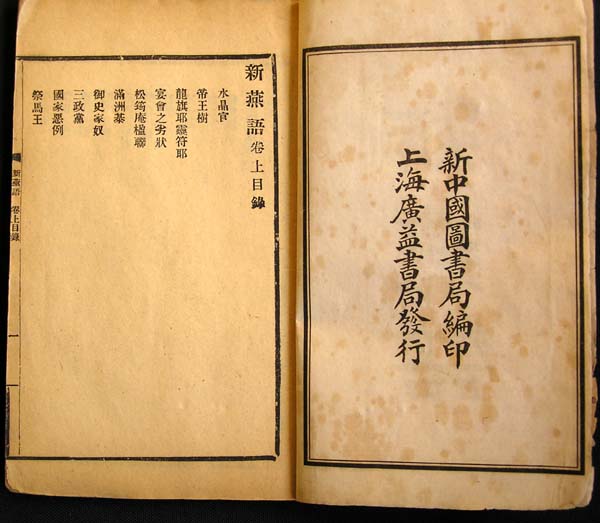 新中國圖書局編印
上海廣益書局發行
新燕語 卷上目錄
水晶官
帝王樹
龍旗耶靈符耶
宴會之劣狀
松筠庵楹聯
滿洲棊
御史家奴
三政黨
國家惡例
祭馬王
新燕語 卷上目錄
一